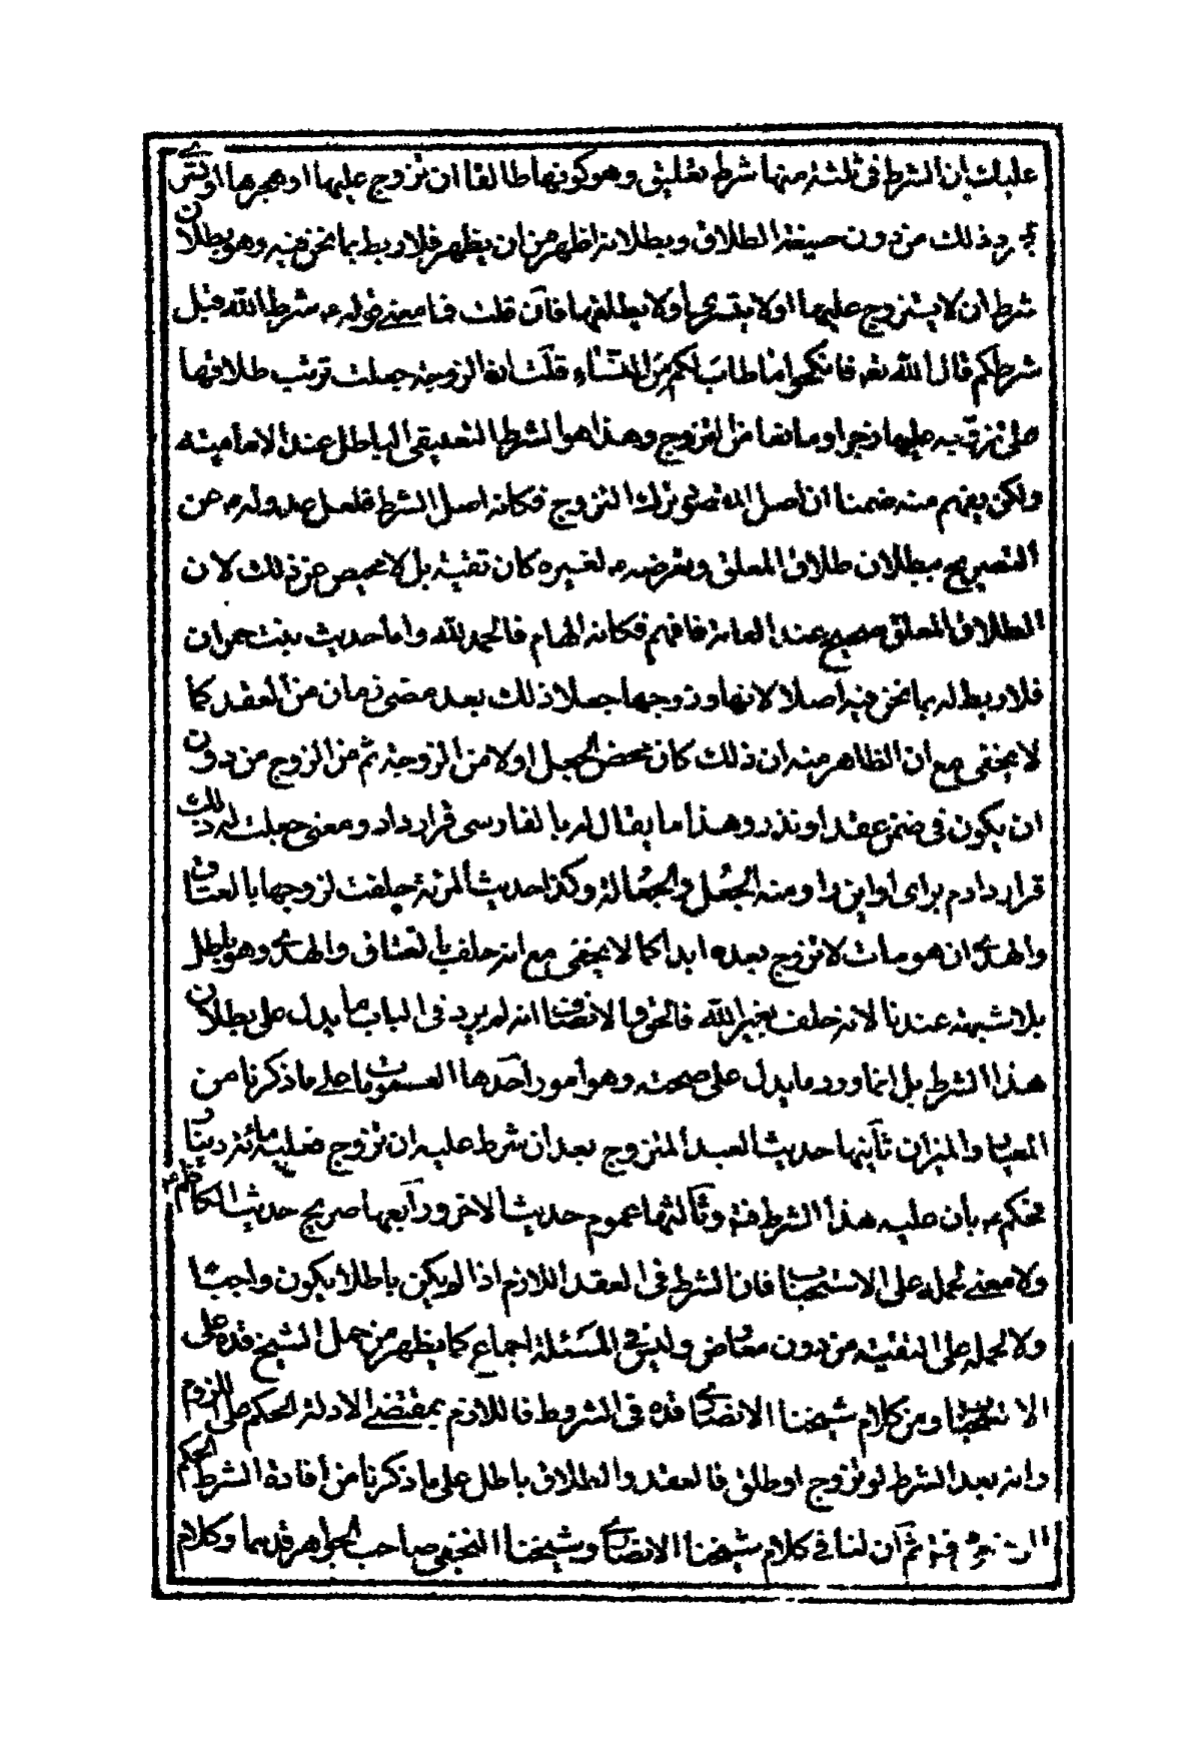 عليك بان الشرط فى ثلثة منها شرط تعليق وهو كونها طالقا ان تزوج عليها او هجرها او تسرى
بمجرد ذلك من دون صيغة الطلاق وبطلانه اظهر من ان يظهر فلا ربط بما نحن فيه وهو بطلان
شرط ان لا يتزوج عليها اولا يتسرى اولا يطلقها فان قلت فما معنى قوله ع شرط الله قبل
شرطكم قال الله تعه فانكحوا ما طاب لكم من النساء قلت ان الزوجة جعلت ترتب طلاقها
على تزويجه عليها زجرا ومانعا من التزوج وهذا هو الشرط التعليقى الباطل عند الامامية
ولكن يفهم منه ضمنا ان اصل المقصود ترك التزوج فكانه اصل الشرط فلعل عدوله ع عن
التصريح ببطلان طلاق المعلق وتعرضه ع لغيره كان تقية بل لا محيص عن ذلك لان
الطلاق المعلق صحيح عند العامة فافهم فكانه الهام فالحمد لله واما حديث بنت حمران
فلا ربط له بما نحن فيه اصلا لانها وزوجها جعلا ذلك بعد مضى زمان من العقد كما
لا يخفى مع ان الظاهر منه ان ذلك كان محض الجعل اولا من الزوجة ثم من الزوج من دون
ان يكون فى ضمن عقد او نذر وهذا ما يقال له بالفارسى قرار داد ومعنى جعلت له ذلك
قرار دادم براى او اين را ومنه الجعل والجعالة وكذا حديث المرئة حلفت لزوجها بالعتاق
والهدى ان هو مات لا تزوج بعده ابدا كما لا يخفى مع انه حلف بالعتاق والهدى وهو باطل
بلا شبهة عندنا لانه حلف بغير الله فالحق والانصاف انه لم يرد فى الباب ما يدل على بطلان
هذا الشرط بل انما ورد ما يدل على صحته وهو امور احدها العمومات على ما ذكرنا من
المعيار والميزان ثانيها حديث العبد المتزوج بعد ان شرط عليه ان تزوج فعليه مائة دينار
فحكم ع بان عليه هذا الشرط فته وثالثها عموم حديث الاخر ورابعها صريح حديث الكاظم ع
ولا معنى لحمله على الاستحباب فان الشرط فى العقد اللازم اذا لم يكن باطلا يكون واجبا
ولا لحمله على التقية من دون معارض وليس فى المسئلة اجماع كما يظهر من حمل الشيخ قده على
الاستحباب ومن كلام شيخنا الانصارى قده فى الشروط فاللازم بمقتضى الادلة الحكم على اللزوم
وانه بعد الشرط لو تزوج او طلق فالعقد والطلاق باطل على ما ذكرنا من افادة الشرط الحكم
فته ثم ان لنا فى كلام شيخنا الانصارى وشيخنا النجفى صاحب الجواهر قدهما وكلام